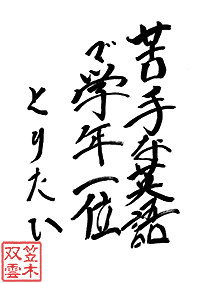 苦手な英語
で学年一位
とりたい
笠木
双雲